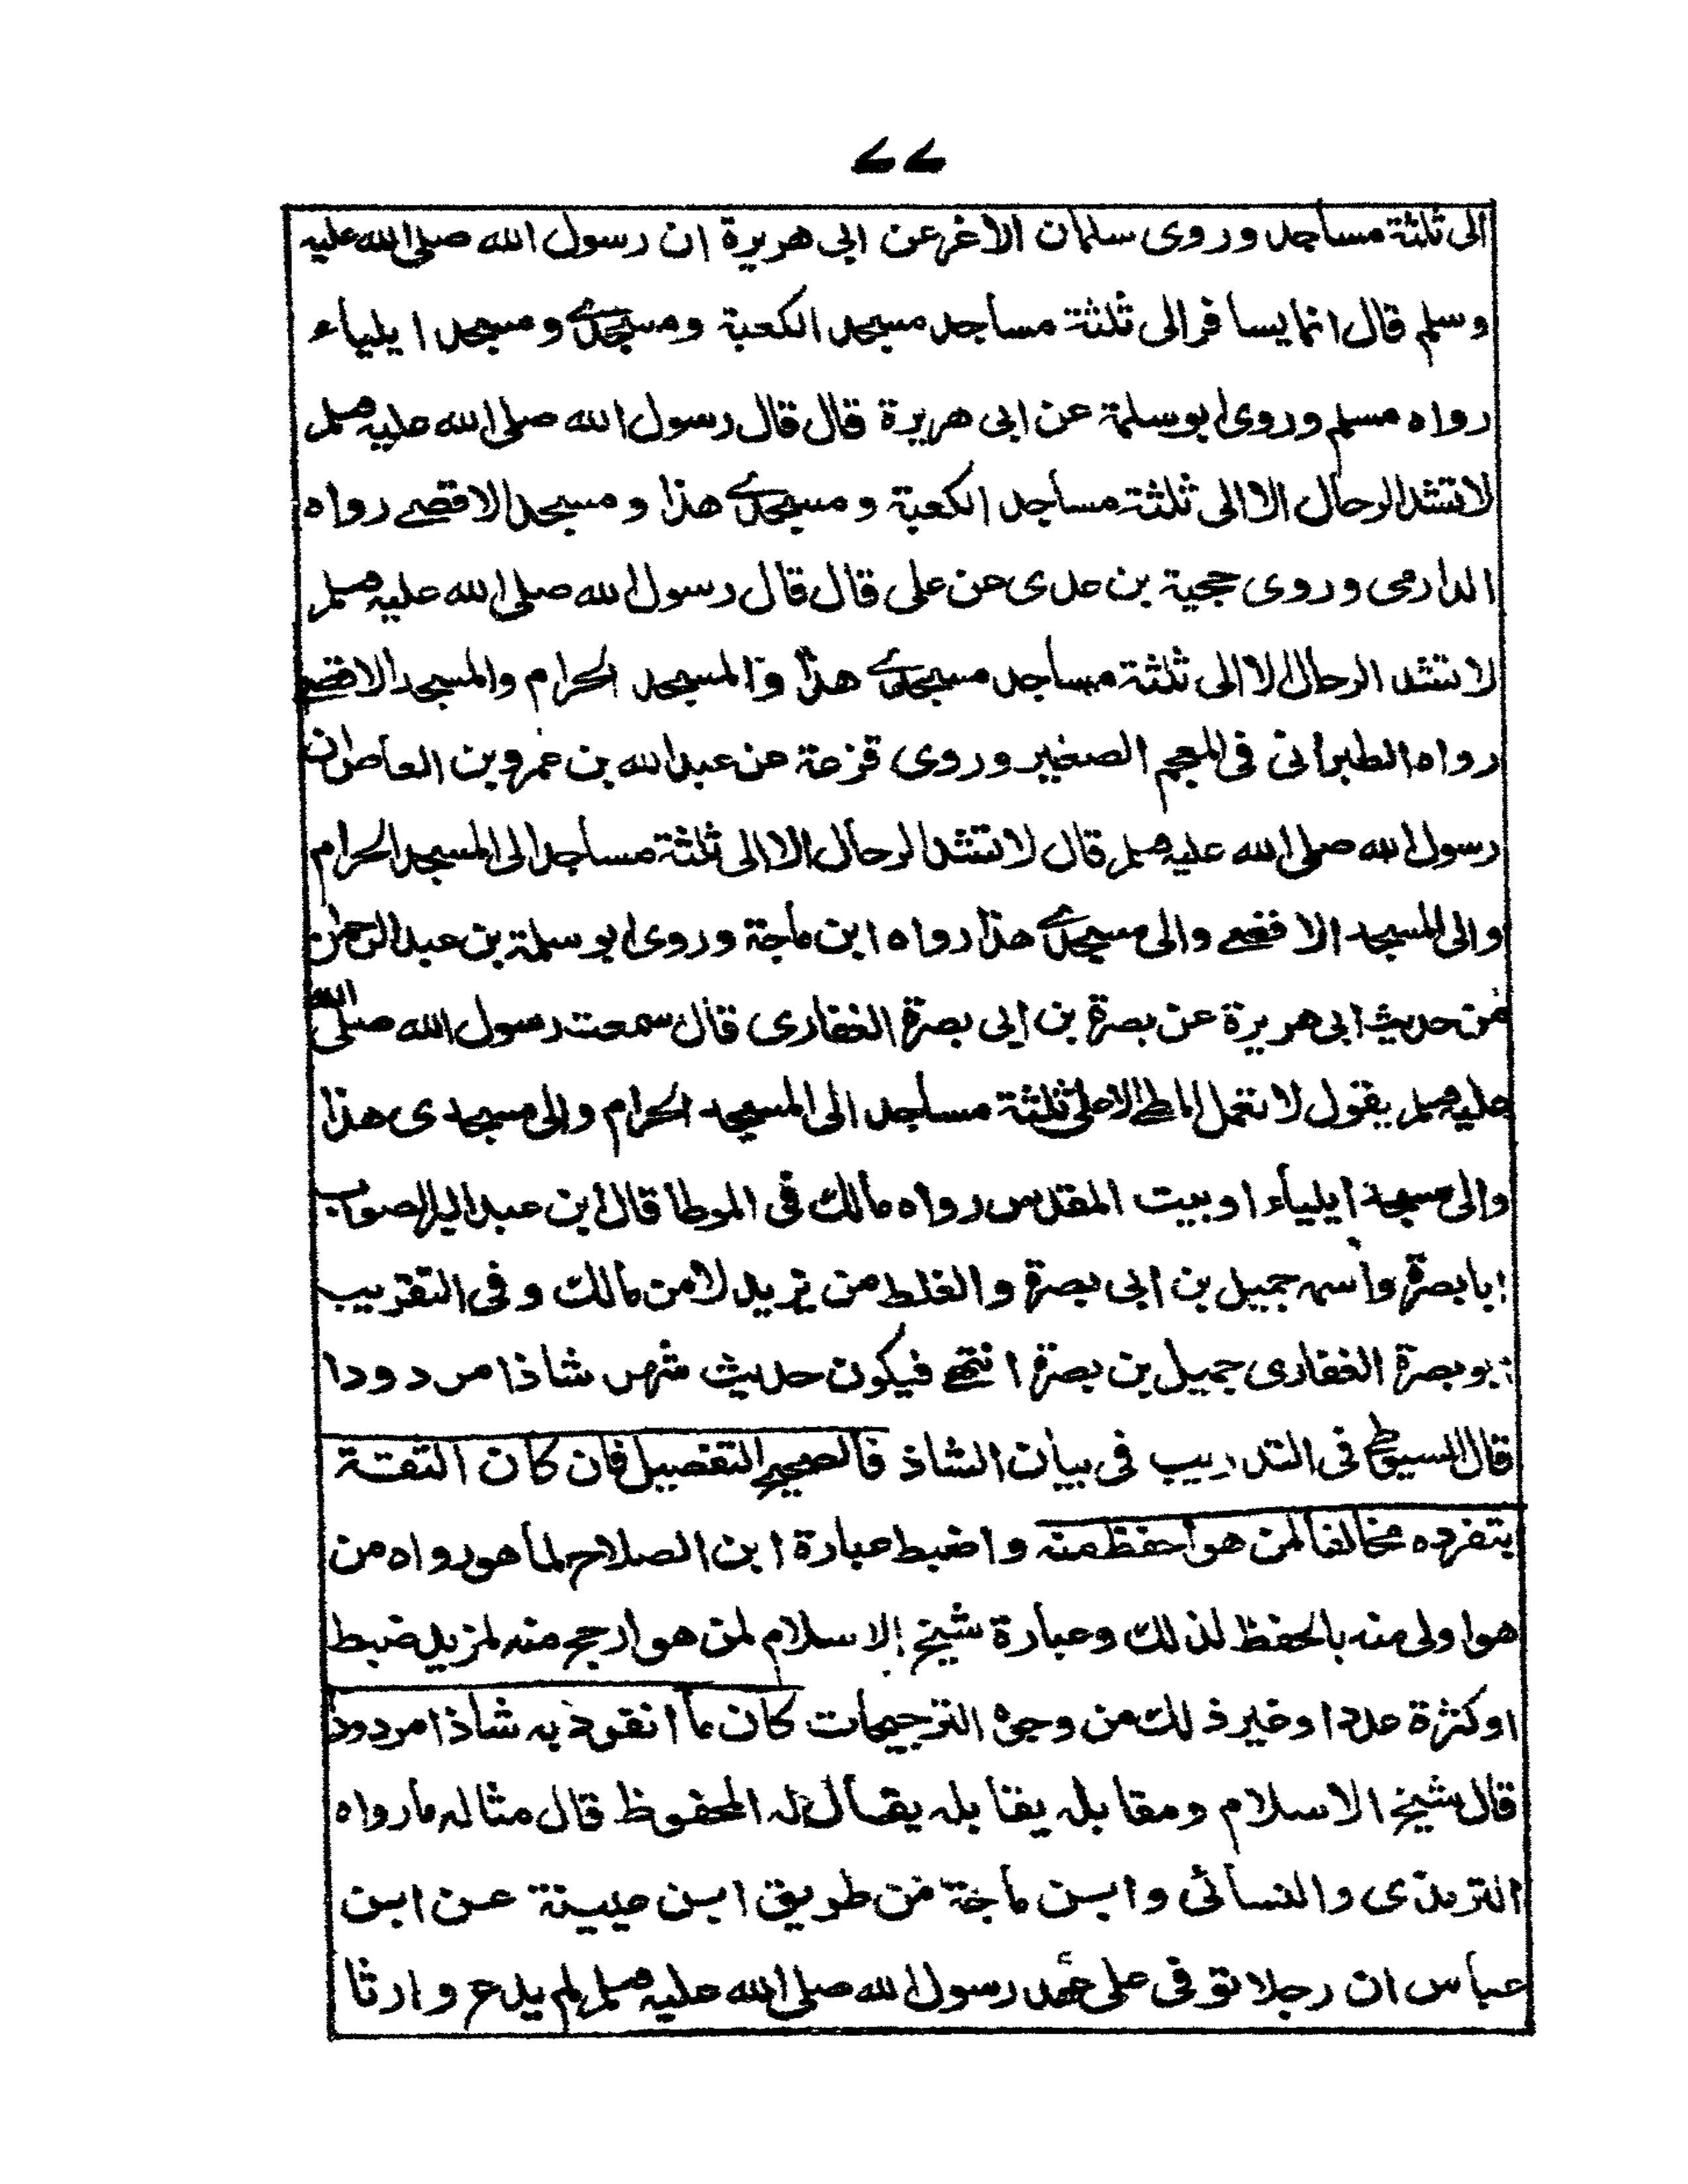 ۷۷
الى ثلثة مساجد وروى سلمان الاغر عن ابى هريرة ان رسول الله صلى الله عليه
وسلم قال انما يسافر الى ثلثة مساجد مسجد الكعبة ومسجدے ومسجد ايلياء
رواه مسلم وروى ابو سلمة عن ابى هريرة قال قال رسول الله صلى الله عليه وسلم
لا تشد الرحال الا الى ثلثة مساجد الكعبة ومسجدے هذا ومسجد الاقصے رواه
الدارمى وروى حجية بن عدى عن على قال قال رسول الله صلى الله عليه وسلم
لا تشد الرحال الا الى ثلثة مساجد مسجدے هذا والمسجد الحرام والمسجد الاقصے
رواه الطبرانى فى المعجم الصغير وروى قزعة عن عبد الله بن عمرو بن العاص ان
رسول الله صلى الله عليه وسلم قال لا تشد الرحال الا الى ثلثة مساجد الى المسجد الحرام
والى المسجد الاقصے والى مسجدے هذا رواه ابن ماجة وروى ابو سلمة بن عبد الرحمن
من حديث ابى هريرة عن بصرة بن ابى بصرة الغفارى قال سمعت رسول الله صلى الله
عليه وسلم يقول لا تعمل المطے الا على ثلثة مساجد الى المسجد الحرام والى مسجدى هذا
والى مسجد ايلياء او بيت المقدس رواه مالك فى الموطا قال ابن عبد البر الصواب
ابا بصرة واسمه جميل بن ابى بصرة والغلط من يزيد لا من مالك وفى التقريب
ابو بصرة الغفارى جميل بن بصرة انتهے فيكون حديث شهر شاذا مردودا
قال السيوطى فى التدريب فى بيان الشاذ فالصحيح التفصيل فان كان الثقة
بتفرده مخالفا لمن هو احفظ منه واضبط عبارة ابن الصلاح لما هو رواه من
هو اولى منه بالحفظ لذلك وعبارة شيخ الاسلام لمن هو ارجح منه لمزيد ضبط
او كثرة عدد او غير ذلك من وجوه الترجيحات كان ما انفرد به شاذا مردودا
قال شيخ الاسلام ومقابله يقابله يقال له المحفوظ قال مثاله ما رواه
الترمذى والنسائى وابن ماجة من طريق ابن عيينة عن ابن
عباس ان رجلا توفى على عهد رسول الله صلى الله عليه وسلم لم يدع وارثا